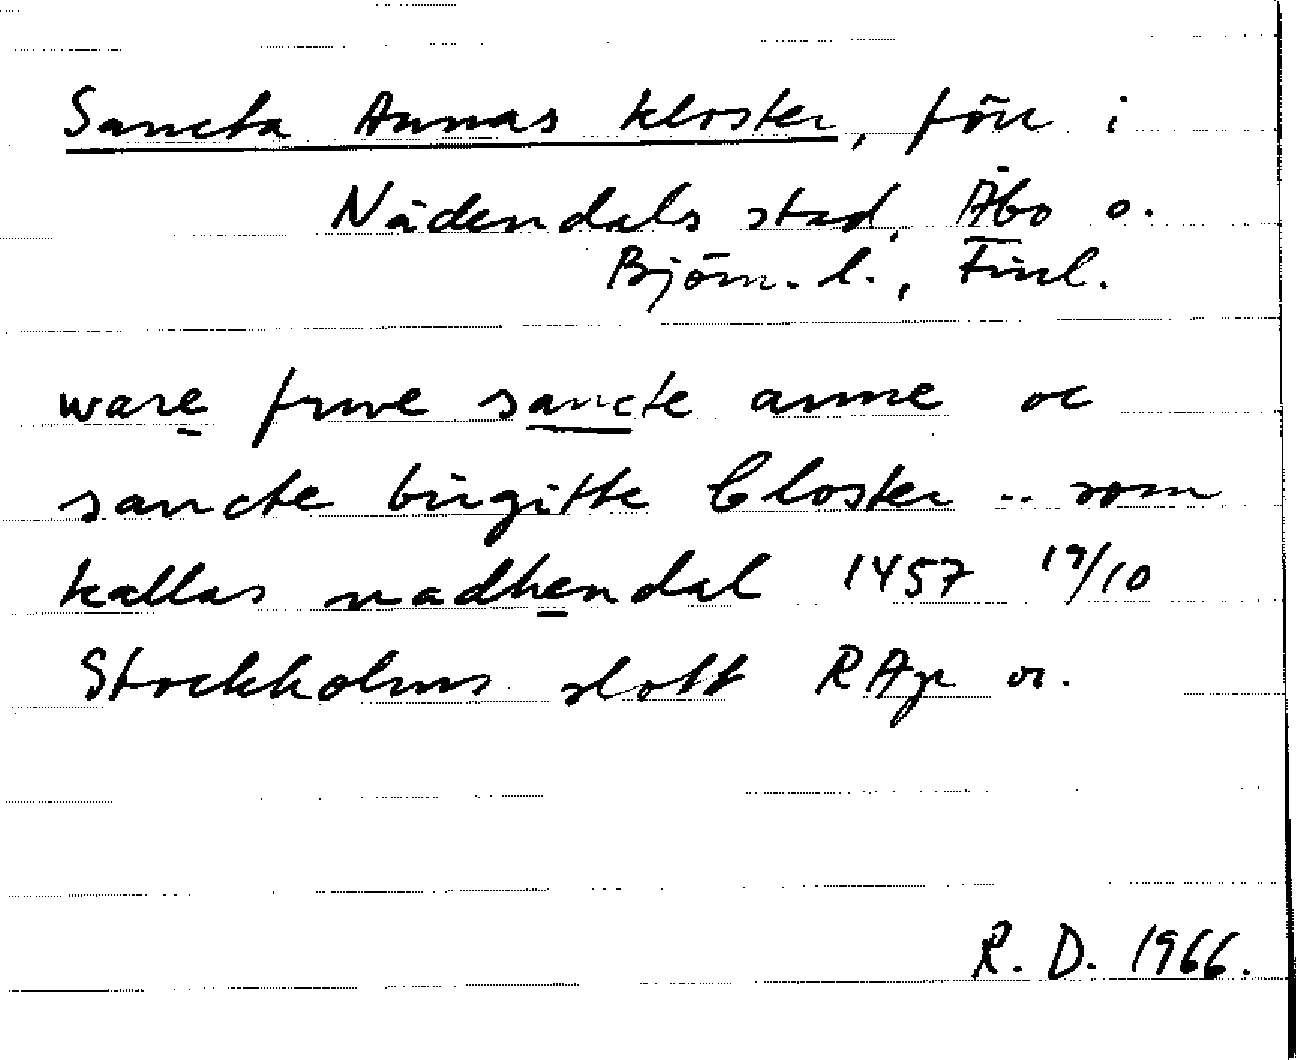 Sancta Annas kloster, förr i
Nådendals stad, Åbo o.
Björn. l., Finl.
ware frwe sancte anne oc
sancte birgitte Closter .. som
kallas nadhendal 1457 19/10
Stockholms slott RAp or.
R. D. 1966.